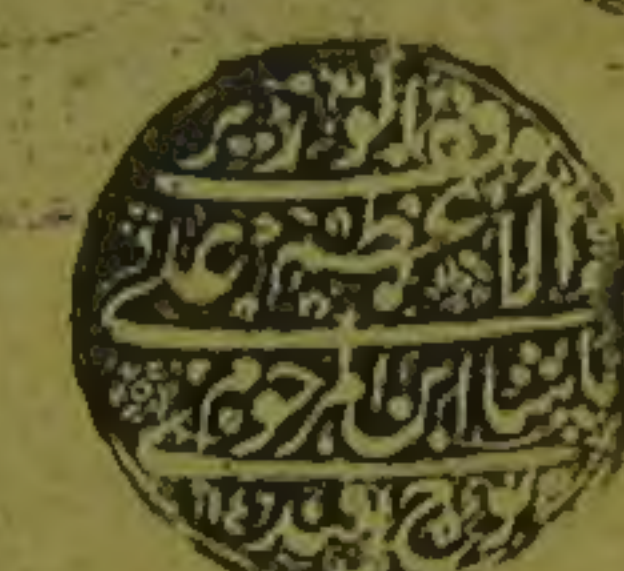 وقف الوزير
الاعظم علي
پاشا ابن المرحوم
نوح افندي ١١٤٦